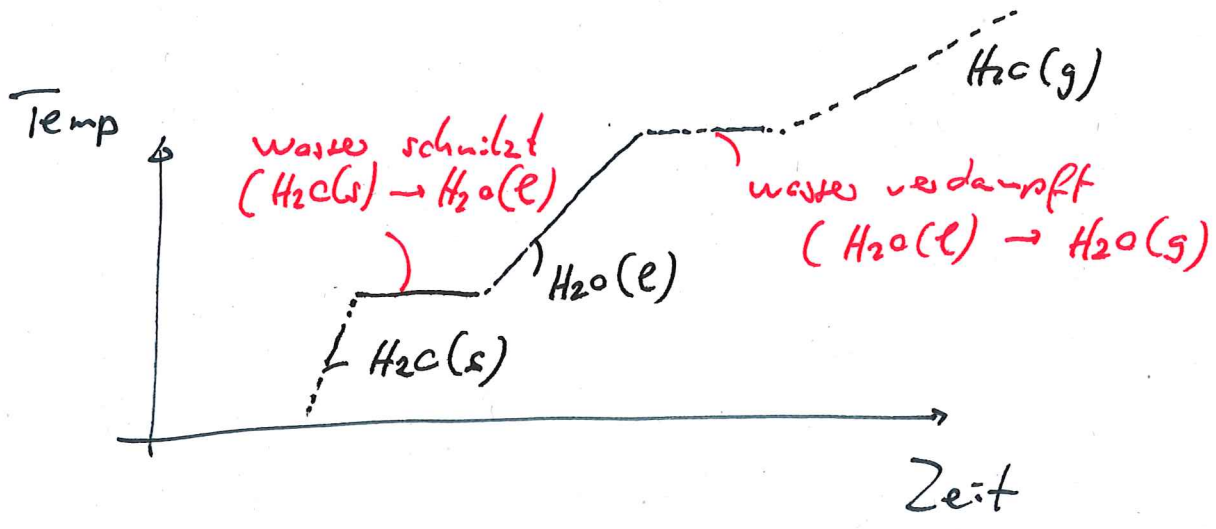 Temp
H2O(g)
wasser schmilzt
(H2O(s) → H2O(l)
wasser verdampft
(H2O(l) → H2O(g)
H2O(l)
H2O(s)
Zeit